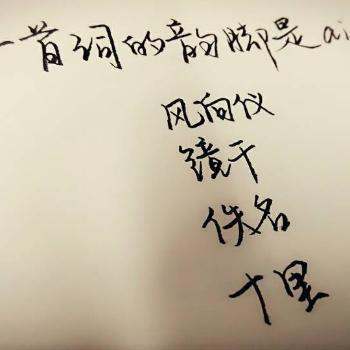 一首词的韵脚是ai
风向仪
镜干
佚名
十里